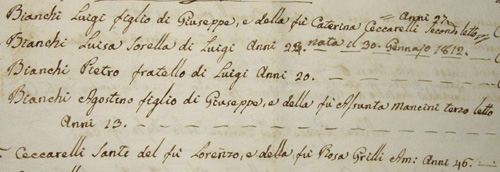 Bianchi Luigi figlio di Giuseppe, e della fù Caterina Ceccarelli Secondo letto // Anni 27. //
Bianchi Luisa Sorella di Luigi Anni 22. nata il 30. Gennajo 1812.
Bianchi Pietro fratello di Luigi Anni 20.
Bianchi Agostino figlio di Giuseppe, e della fù Assunta Mancini terzo letto
Anni 13.
Ceccarelli Santi del fù Lorenzo, e della fù Rosa Grilli Am: Anni 46.